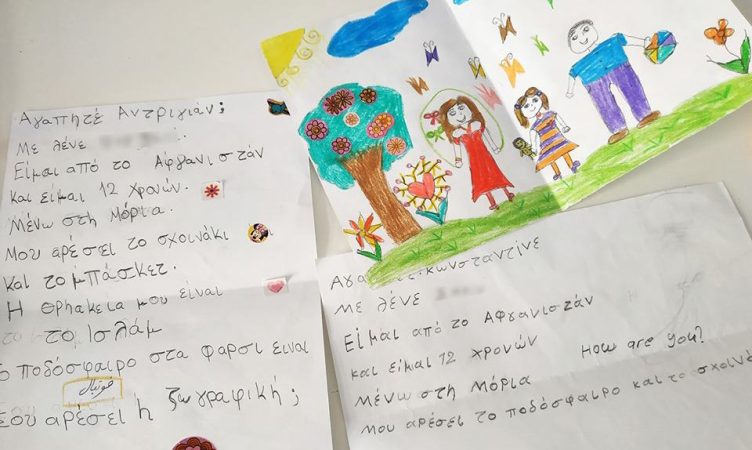 Αγαπητέ Αντριγιάν;
Με λένε
Είμαι από το Αφγανιστάν
Και είμαι 12 χρονών.
Μένω στη Μόρια.
Μου αρέσει το σχοινάκι
Και το μπάσκετ.
Η θρηακεια μου είναι
το Ισλάμ
ο ποδόσφαιρο στα φαρσι ειναι
فوتبال
Σου αρέσει ή ζωγραφική;
Κωνσταντίνε
Με λένε
Είμαι από το Αφγανιστάν
και είμαι 12 χρονών How are you?
Μένω στη Μόρια
Μου αρέσει το ποδόσφαιρο και το σχοινά